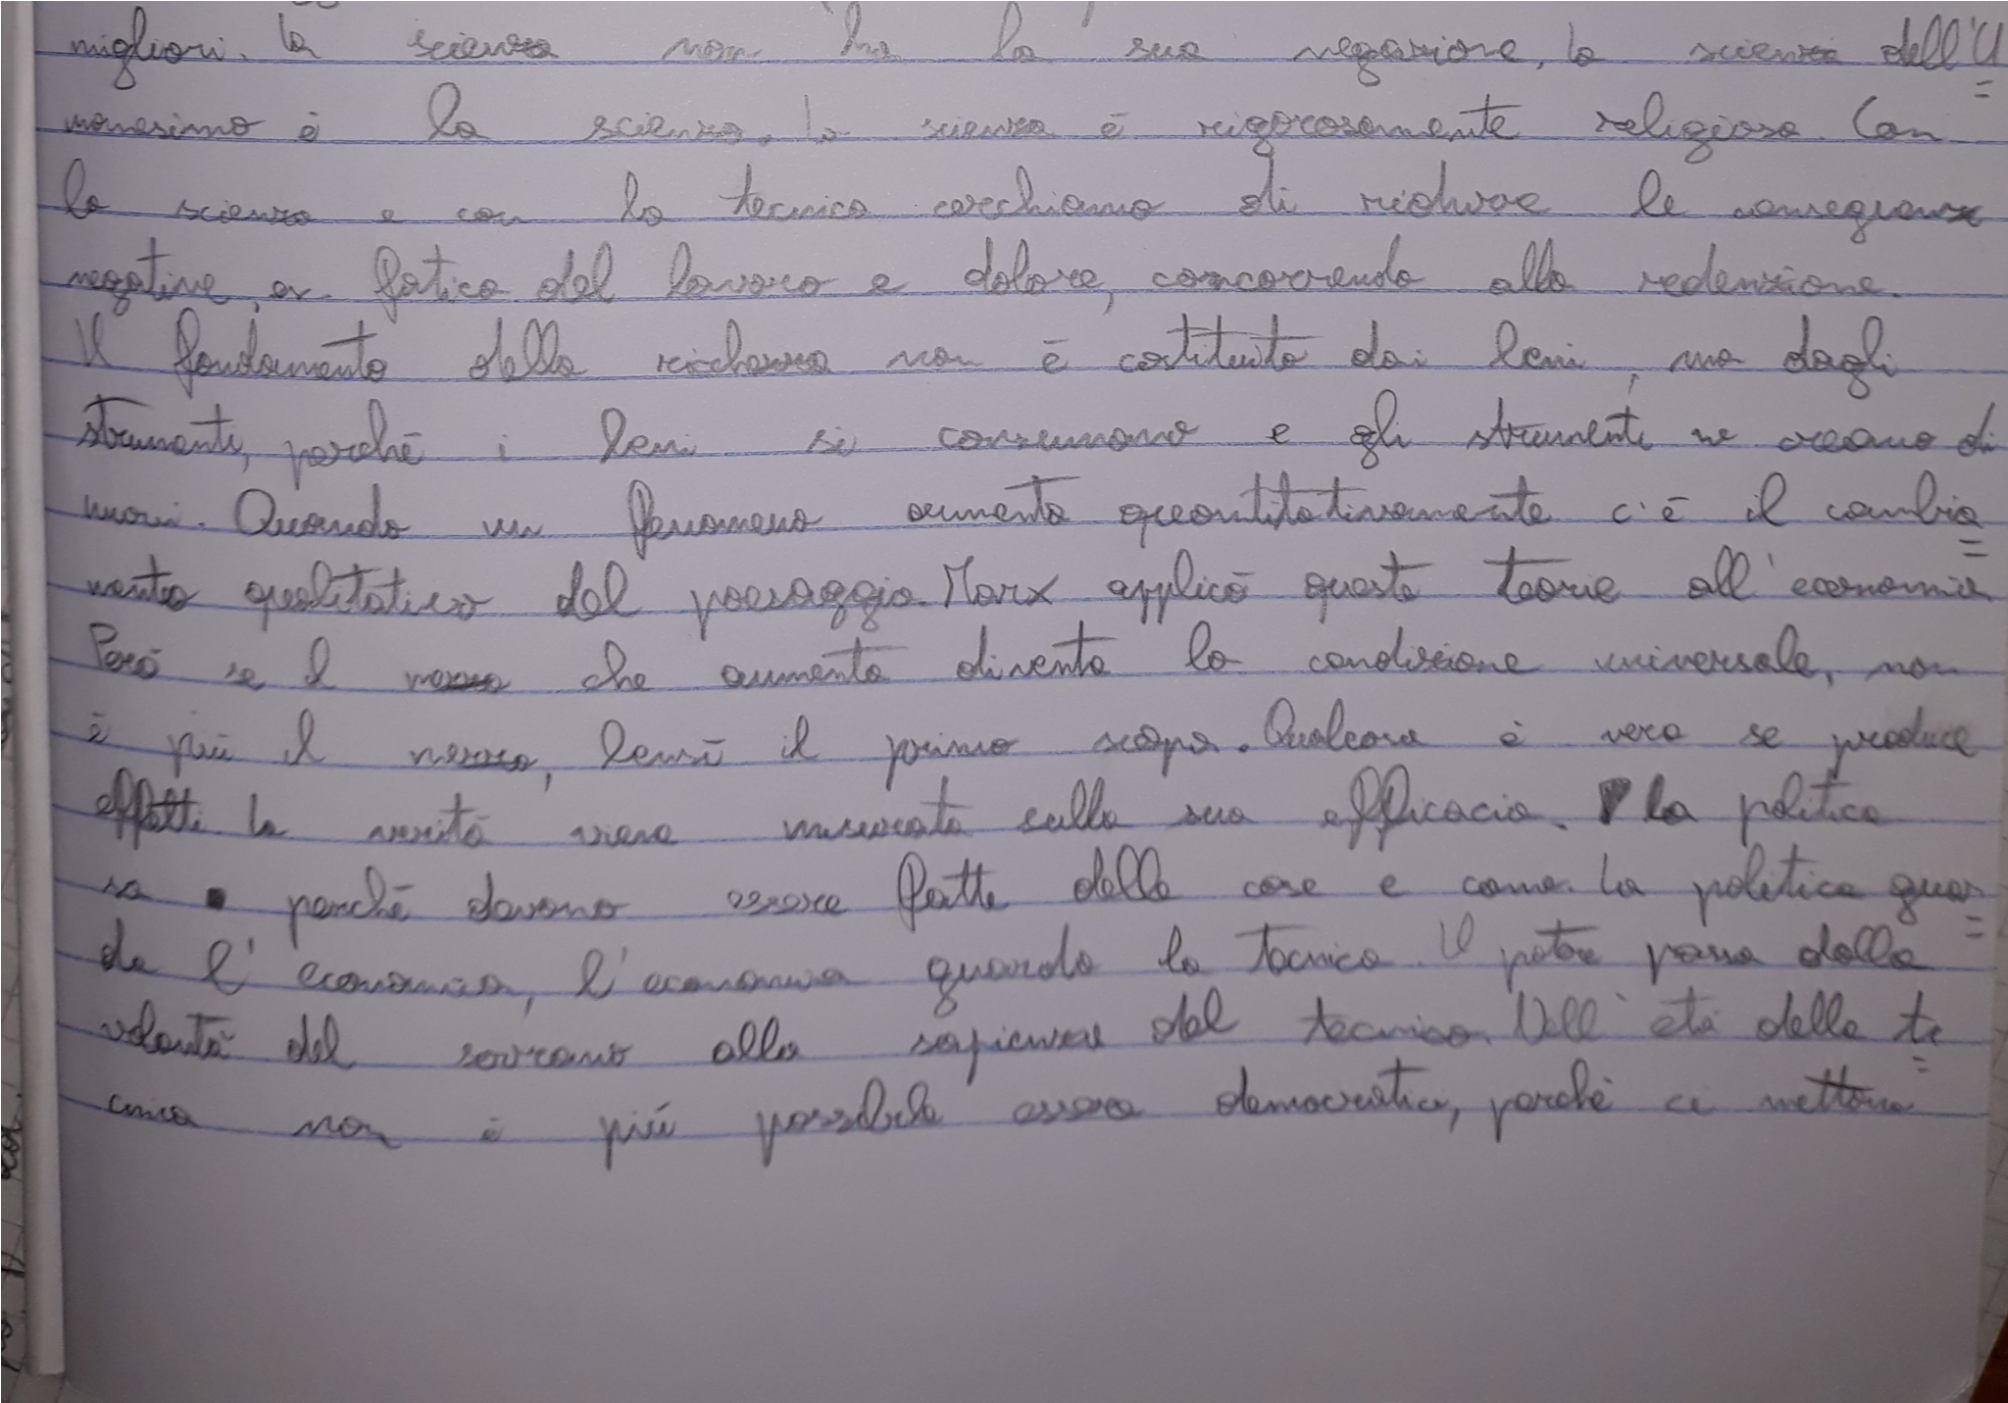 migliori. la scienza non ha la sua negazione, la scienza dell'U=
manesimo è la scienza. la scienza è rigorosamente religiosa. Con
la scienza e con la tecnica cerchiamo di ridurre le conseguenze
negative, fatica del lavoro e dolore, concorrendo alla redenzione.
Il fondamento della ricchezza non è costituito dai beni, ma dagli
strumenti, perché i beni si consumano e gli strumenti ne creano di
nuovi. Quando un fenomeno aumenta quantitativamente c'è il cambia=
mento qualitativo del paesaggio. Marx applicò queste teorie all'economia
Però se il mezzo che aumenta diventa la condizione universale, non
è più il mezzo, bensì il primo scopo. Qualcosa è vera se produce
effetti. la verità viene misurata sulla sua efficacia. la politica
sa perché devono essere fatte delle cose e come. la politica guar=
da l'economia, l'economia guarda la tecnica. Il potere passa dalla
volontà del sovrano alla sapienza del tecnico. Nell'età della te=
cnica non è più possibile essere democratici, perché ci mettono